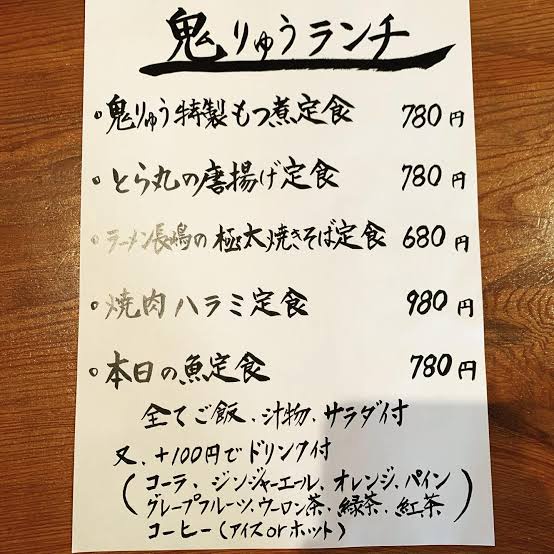 鬼りゅうランチ
・鬼りゅう特製もつ煮定食 780円
・とら丸の唐揚げ定食 780円
・ラーメン長嶋の極太焼きそば定食 680円
・焼肉ハラミ定食 980円
・本日の魚定食 780円
全てご飯、汁物、サラダ付
又、+100円でドリンク付
(コーラ、ジンジャーエール、オレンジ、パイン
グレープフルーツ、ウーロン茶、緑茶、紅茶)
コーヒー(アイスorホット)